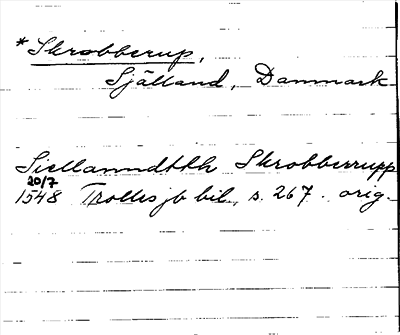 *Skrobberup,
Själland, Danmark
Siellanndthh Skrobberrupp
20/7
1548 Trolles jb bil, s. 267. orig.